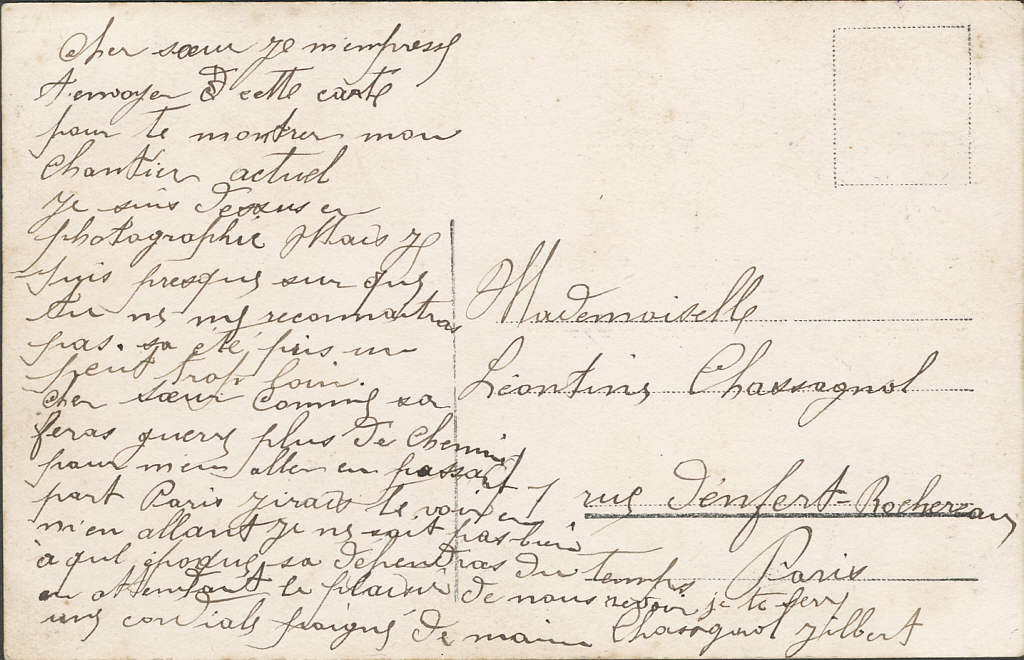 Cher sœur Je m'empresse
t'envoyer cette carte
pour te montrer mon
chantier actuel
Je suis dessus en
photographie Mais Je
suis presque sur que
tu ne me reconnaitras
pas. sa été pris un
peut trop loin.
Cher sœur comme sa
feras guere plus de chemin
pour m'en aller en passant
part Paris J'irais te voir en
m'en allant Je ne sait pas bien
a qul époque sa dependras du temps
en attendant le plaisir de nous revoir je te serre
une cordiale poigné de main Chassagnol Jilbert
Mademoiselle
Léontine Chassagnol
7 rue Denfert-Rochereau
Paris